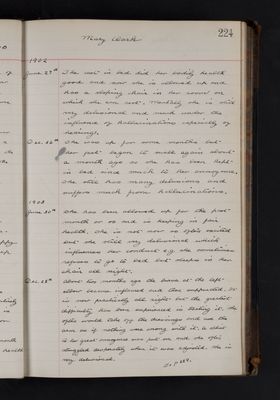 Mary Clark
224
1902
June 23rd The rest in bed did her bodily health
good and now she is allowed up and
has a sloping chair in her room on
which she can rest. Mentally she is still
very delusional and much under the
influence of hallucinations especially of
hearing.
Dec. She was up for some months but
began to walk again about
a month ago so she has been kept
in bed since much to her annoyance.
She still has many delusions and
suffers much from hallucinations.
1903
June 30th She has been allowed up for the past
month or so and is keeping in fair
health. She is not now so often excited
but she is still very delusional which
influences her conduct e.g. she sometimes
refuses to go to bed but sleeps in her
chair all night.
Dec. About two months ago the bursa at the left
elbow became inflamed and then suppurated. It
is now practically all right but the greatest
difficulty has been experienced in treating it. She
often would take off the dressings and use the
arm as if nothing was wrong with it.
very delusional.